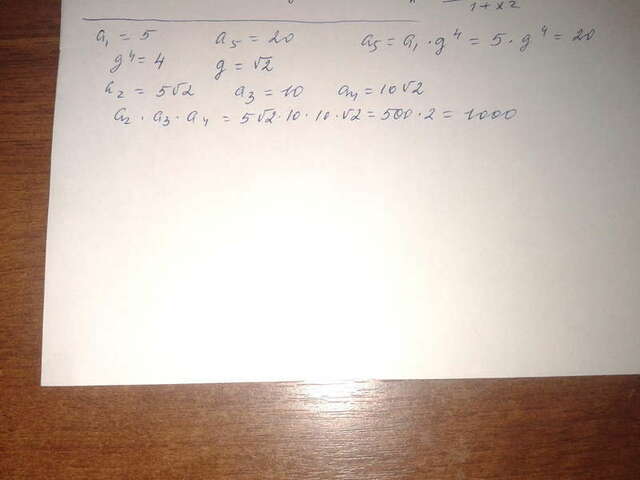 1+x2
a₁ = 5 a₅ = 20 a₅ = a₁ · g⁴ = 5 · g⁴ = 20
g⁴ = 4 g = √2
a₂ = 5√2 a₃ = 10 a₄ = 10√2
a₂ · a₃ · a₄ = 5√2·10·10·√2 = 500·2 = 1000